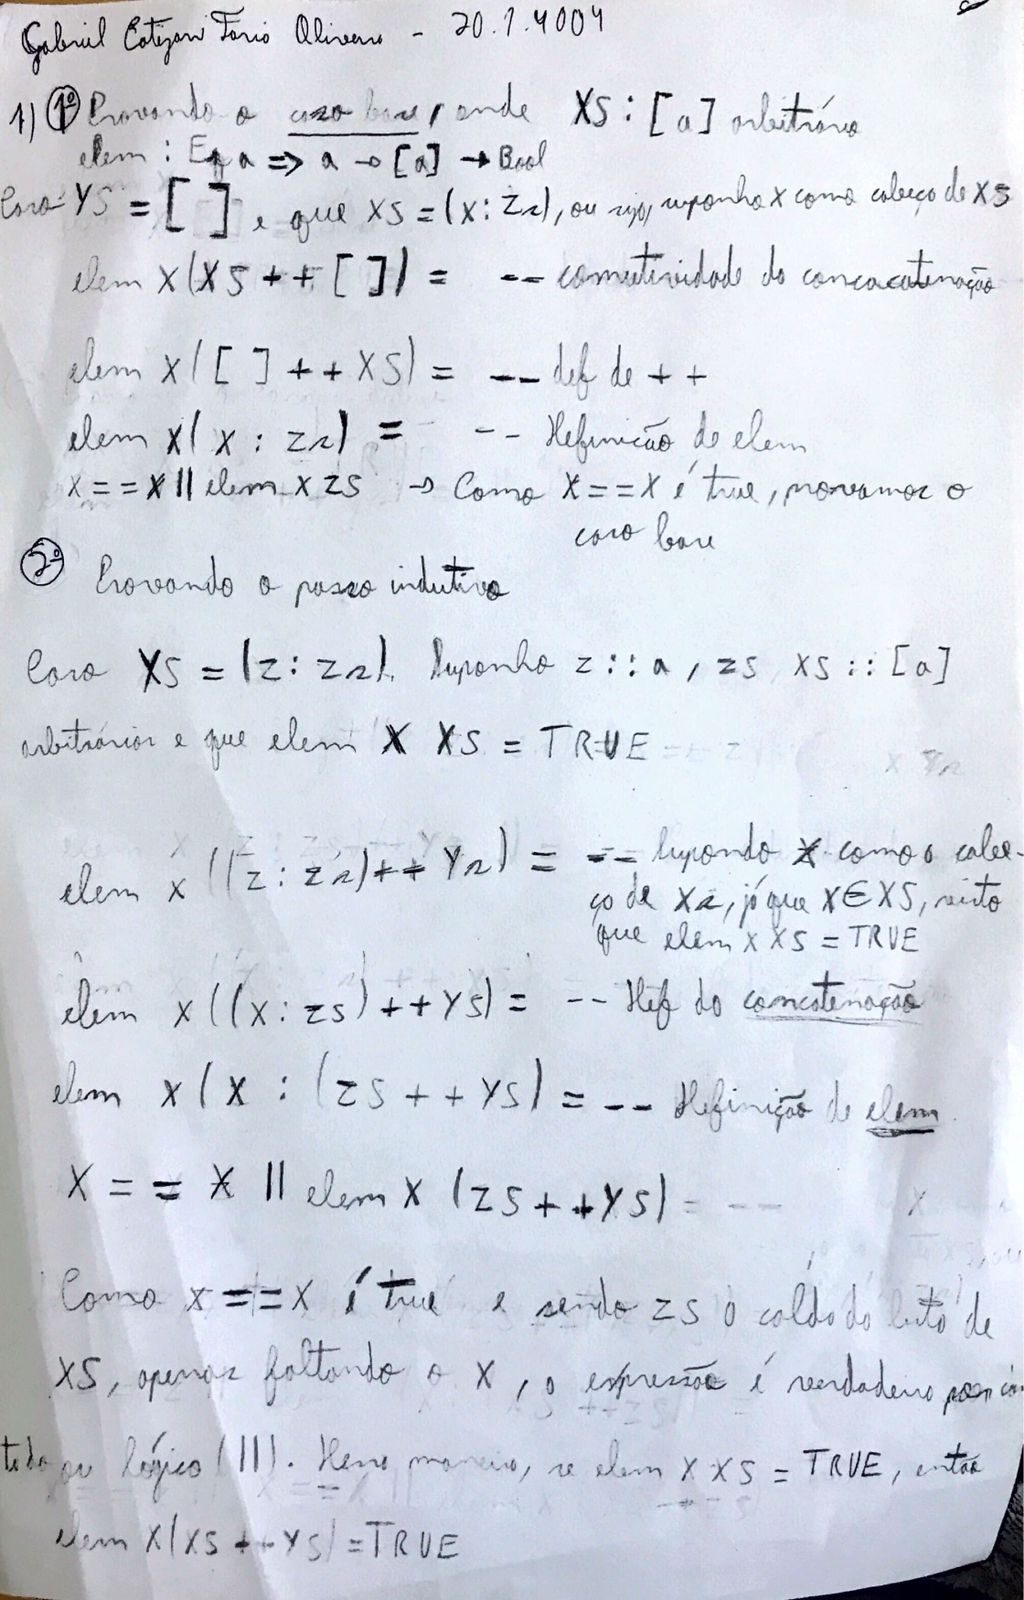 Gabriel Faria Oliveira - 20.1.4004
1) 1º Provando o caso base, onde XS : [a] arbitrário
elem : Eq a => a → [a] → Bool
Caso YS = [ ] e que XS = (x : zs), ou seja, suponha x como cabeça de XS
elem x (XS ++ [ ]) = -- comutatividade da concacatenação
elem x ([ ] ++ XS) = -- def de ++
elem x (x : zs) = -- Definição de elem
x == x || elem x zs → Como x == x é true, provamos o
caso base
2º Provando o passo indutivo
Caso XS = (z : zs). Suponha z :: a, zs XS :: [a]
arbitrários e que elem X XS = TRUE
elem x ((z : zs) ++ Ys) = -- Supondo x como o cabe-
ço de Xs, já que X ∈ XS, visto
que elem x XS = TRUE
elem x ((x : zs) ++ YS) = -- Def da concatenação
elem x (x : (zs ++ YS) = -- Definição de elem
X == X || elem x (zs ++ YS) = --
Como x == x é true e sendo zs a calda da lista de
XS, apenas faltando o x, a expressão é verdadeira por
ou lógico (||). Dessa maneira, se elem x XS = TRUE, então
elem x (XS ++ YS) = TRUE